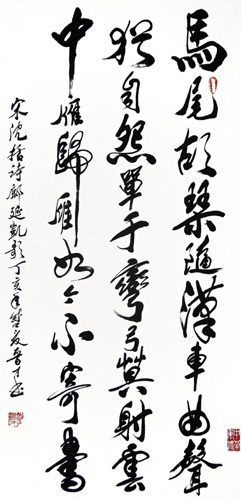 馬尾胡琴隨漢車曲聲
猶自怨單于彎弓莫射雲
中雁歸雁如今不寄書
宋沈括詩鄜延凱歌丁亥年